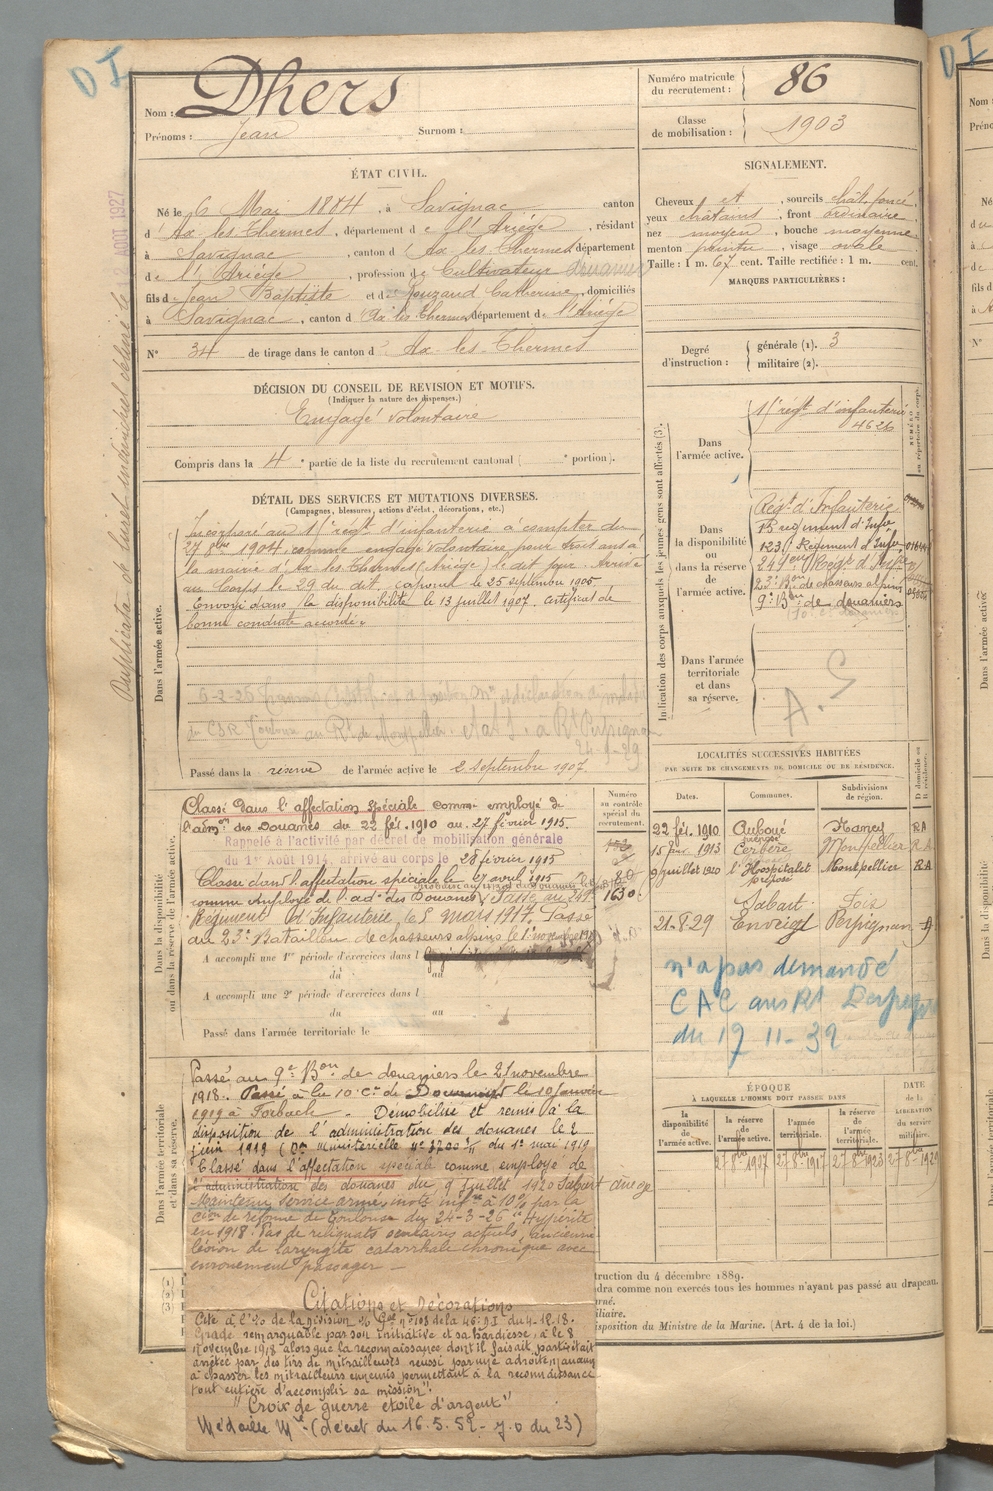 D I
Dhers
Nom :
Prénoms : Jean Surnom :
Numéro matricule du recrutement : 86
Classe de mobilisation : 1903
ÉTAT CIVIL.
Né le 6 Mai 1884, à Savignac canton
d' Ax les Thermes, département de l'Ariège, résidant
à Savignac, canton d'Ax les Thermes département
de l'Ariège, profession de Cultivateur
fils de Jean Baptiste et de Rouzaud Catherine, domiciliés
à Savignac, canton d'Ax les Thermes, département de l'Ariège
N° 34 de tirage dans le canton d' Ax-les-Thermes
SIGNALEMENT.
Cheveux et, sourcils chât. foncé,
yeux châtains, front ordinaire,
nez moyen, bouche moyenne,
menton pointu, visage ovale
Taille : 1 m. 67 cent. Taille rectifiée : 1 m. cent.
MARQUES PARTICULIÈRES :
Degré d'instruction : générale (1). 3
militaire (2).
DÉCISION DU CONSEIL DE REVISION ET MOTIFS.
(Indiquer la nature des dispenses.)
Engagé volontaire
Compris dans la 4e partie de la liste du recrutement cantonal ( e portion).
DÉTAIL DES SERVICES ET MUTATIONS DIVERSES.
(Campagnes, blessures, actions d'éclat, décorations, etc.)
Dans l'armée active.
Incorporé au régt d'infanterie à compter du
27 8bre 1904, comme engagé volontaire pour trois ans à
la mairie d'Ax les Thermes (Ariège) le dit jour. Arrivé
au Corps le 29 du dit, caporal le 25 septembre 1905
Envoyé dans la disponibilité le 13 juillet 1907. Certificat de
bonne conduite accordé.
Passé dans la réserve de l'armée active le 2 septembre 1907.
Indication des corps auxquels les jeunes gens sont affectés (3).
Dans l'armée active.
régt d'infanterie
4626
Dans la disponibilité ou dans la réserve de l'armée active.
Régt d'Infanterie
régiment d'Infie
Régiment d'Infie
249eme Régt d'Infie
23e Bon de chasseurs alpins
9e Bon de douaniers
Dans l'armée territoriale et dans sa réserve.
A. S
Dans la disponibilité ou dans la réserve de l'armée active.
Classé dans l'affectation spéciale comme employé de
l'admon des Douanes du 22 fév. 1910 au 27 février 1915.
Rappelé à l'activité par décret de mobilisation générale
du 1er Août 1914, arrivé au corps le 28 février 1915
Classé dans l'affectation spéciale le 27 avril 1915
comme employé de l'adon des Douanes Passé au 249e
Régiment d'Infanterie le 8 mars 1917. Passé
au 23e Bataillon de chasseurs alpins le 1er novembre
A accompli une 1re période d'exercices dans l
du au
A accompli une 2e période d'exercices dans l
du au
Passé dans l'armée territoriale le
Numéro au contrôle spécial du recrutement.
1630
LOCALITÉS SUCCESSIVES HABITÉES
PAR SUITE DE CHANGEMENTS DE DOMICILE OU DE RÉSIDENCE.
Dates. Communes. Subdivisions de région. D domicile ou R résidence.
22 fév. 1910 Auboué Nancy RA
15 1913 Cerbère Montpellier RA
9 juillet 1920 l'Hospitalet Montpellier RA
préposé
Sabart Foix
21-8-29 Enveigt Perpignan D
n'a pas demandé
CAC
du 17 11-32
ÉPOQUE
À LAQUELLE L'HOMME DOIT PASSER DANS
la disponibilité de l'armée active.
la réserve de l'armée active.
l'armée territoriale.
la réserve de l'armée territoriale.
DATE de la LIBÉRATION du service militaire.
27 8bre 1907 27 8bre 1917 27 8bre 1923 27 8bre 1929
Dans l'armée territoriale et dans sa réserve.
Passé au 9e Bon de douaniers le 21 novembre
1918. Passé à la 10e Cie de le 10 Janvier
1919 à Forbach. Démobilisé et remis à la
disposition de l'administration des douanes le 2
juin 1919 (Don ministérielle du 1er mai 1919
Classé dans l'affectation spéciale comme employé de
l'administration des douanes du 9 juillet 1920 Sabart
Maintenu service armé, invté infre à 10% par la
Cion de réforme de Toulouse du 24-3-26 "Hypérité
en 1918. Pas de reliquats oculaires actuels, ancienne
lésion de laryngite catarrhale chronique avec
enrouement passager —
Citations et Décorations
Cité à l'O de la Division Gal n° 108 de la 46e D I du 4-12-18.
Grade remarquable par son initiative et sa hardiesse, a le 8
Novembre 1918 alors que la reconnaissance dont il faisait partie était
arrêtée par des tirs de mitrailleuses, réussi par une adroite manœuv
à chasser les mitrailleurs ennemis permettant à la reconnaissance
tout entière d'accomplir sa mission".
"Croix de guerre étoile d'argent"
Médaille Mre (décret du 16.5.52 - J.O du 23)
truction du 4 décembre 1889.
dra comme non exercés tous les hommes n'ayant pas passé au drapeau.
isposition du Ministre de la Marine. (Art. 4 de la loi.)